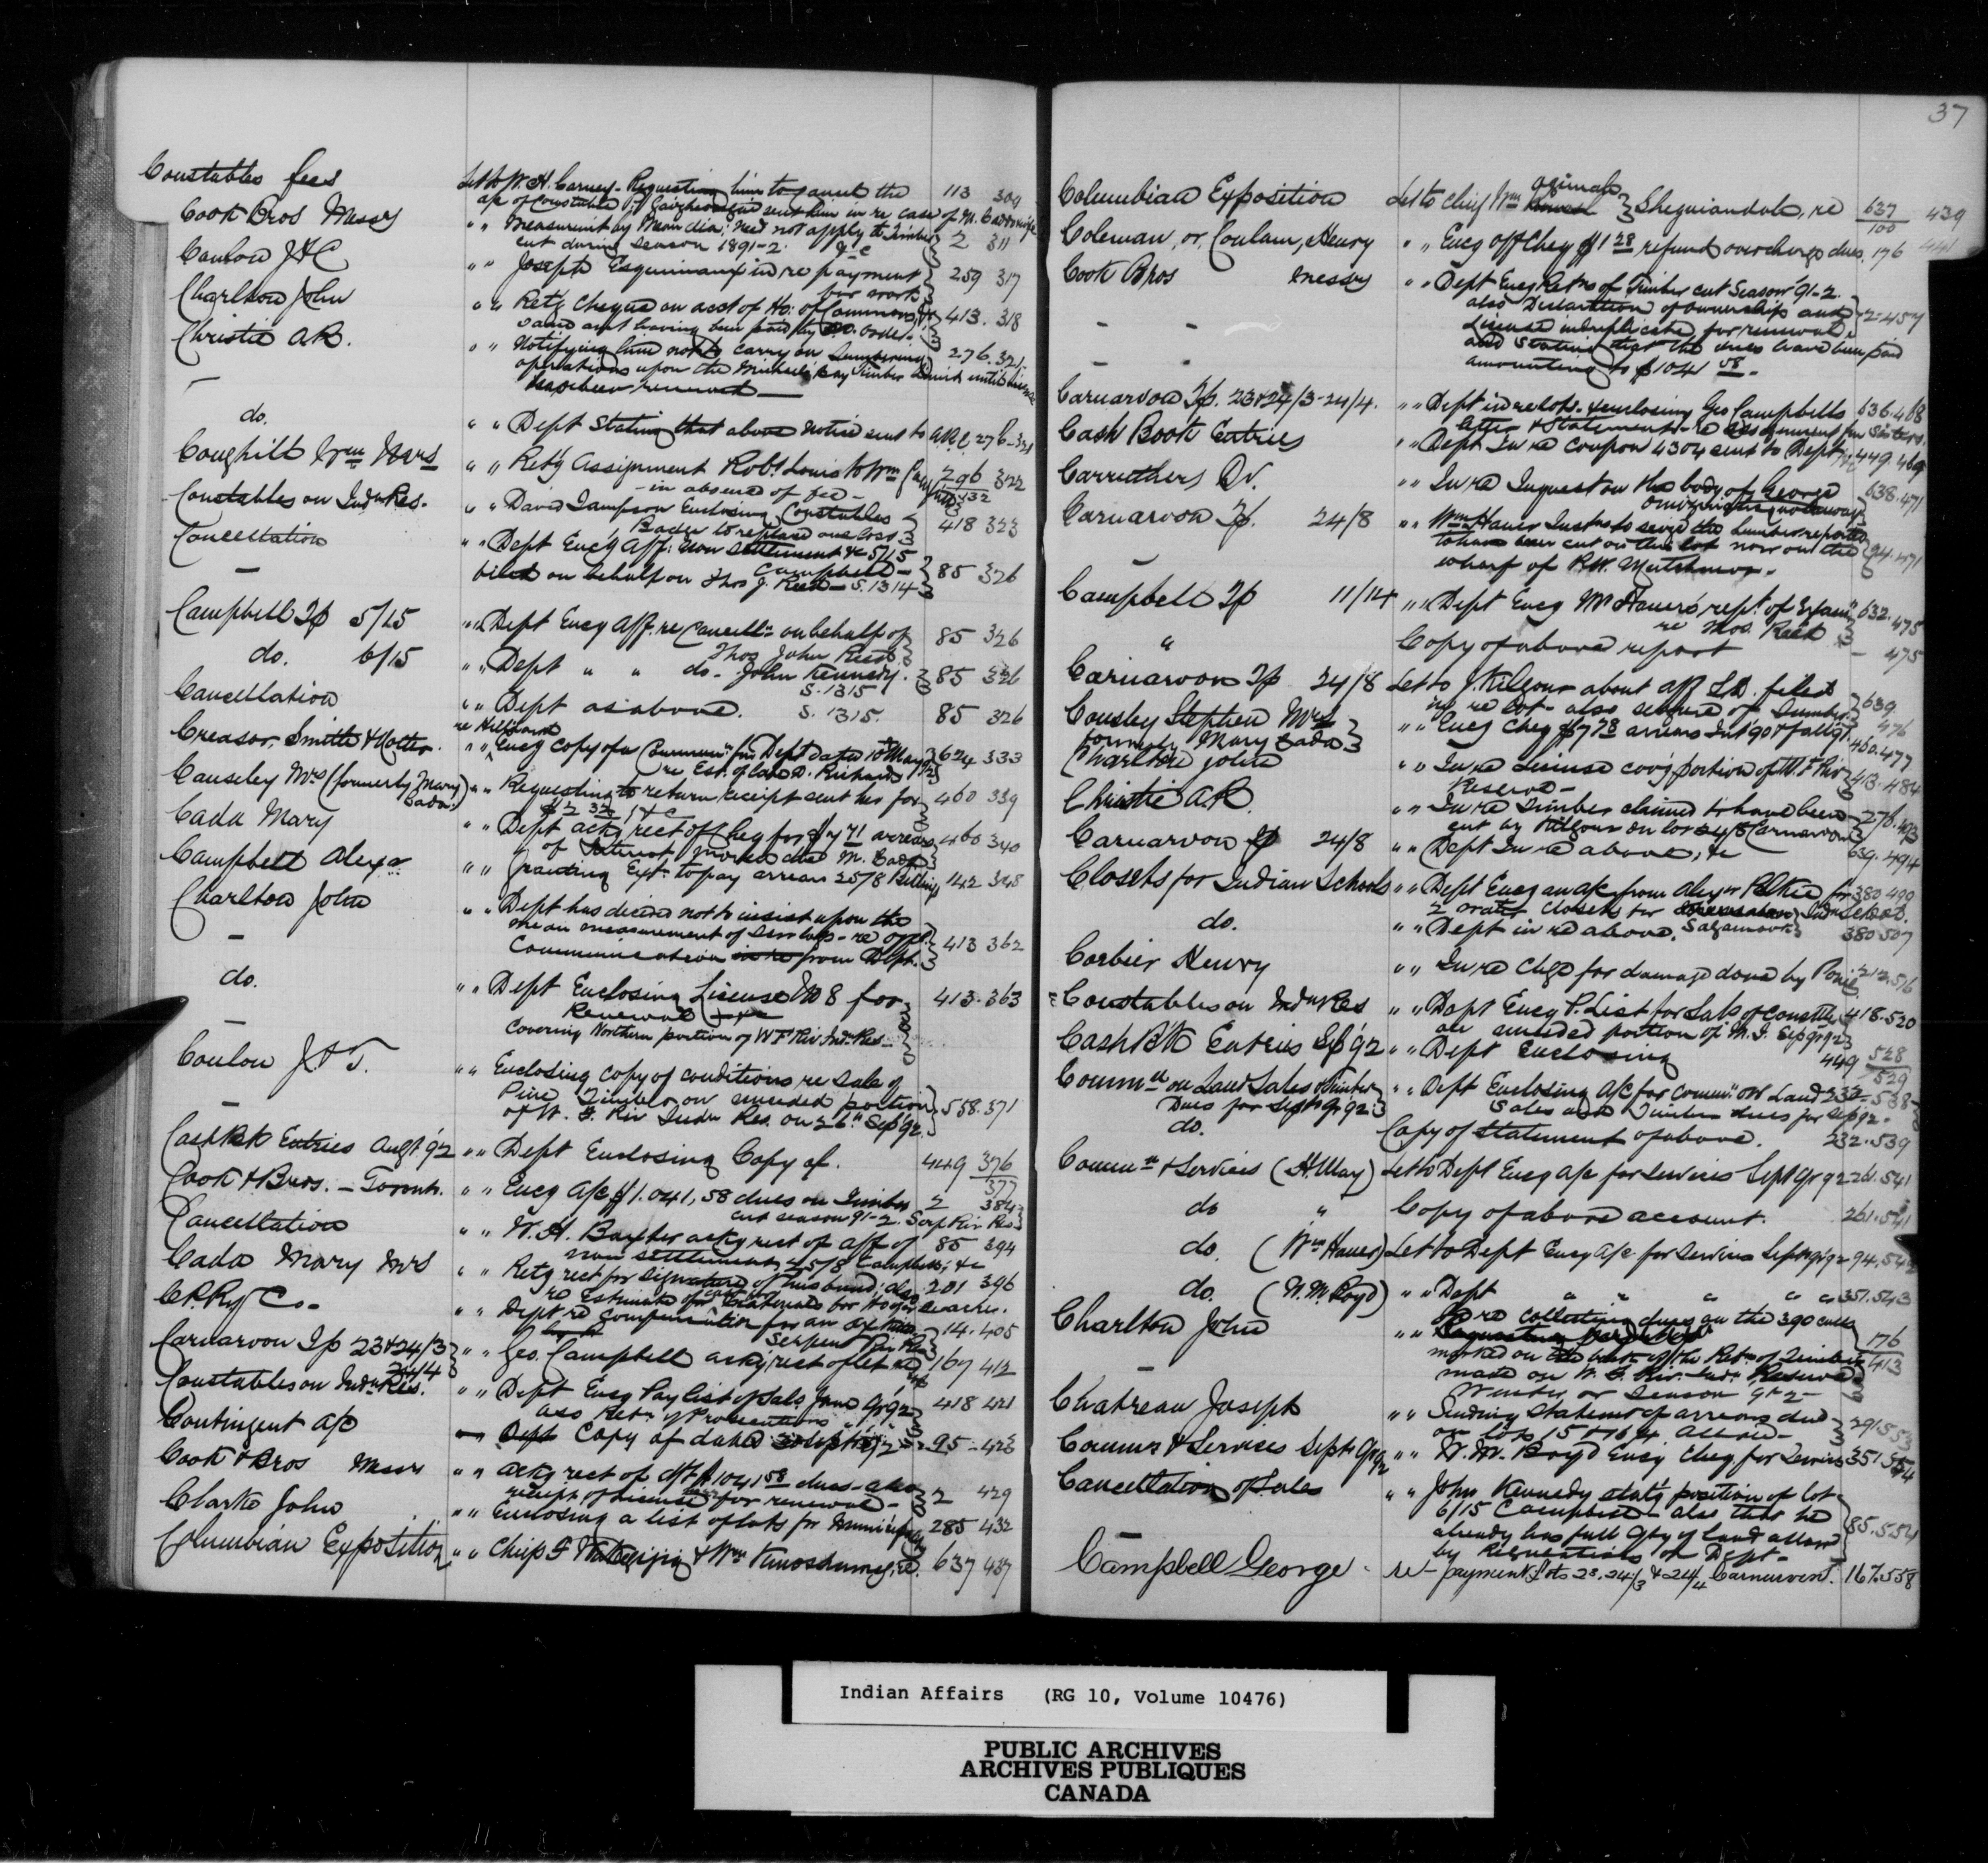 37
Constables fees Let to W. H. Carney - Requesting him to the 113 309
a/c of Constable sent him in re case of M.
Cook Bros Messrs " " Measurement by need not apply to timber 2 311
cut during season 1891-2. &c
Conlon J & C " " Joseph Esquimaux in re payment 259 317
for work
Charlton John " " Retg cheque on acct of Ho: of Commons, &c 413. 318
same amt having been paid by P.O. order.
Christie A R. " " Notifying him not to carry on Lumbering 276. 321
operations upon the Michael's Bay Timber Limits until license
has been renewed
do. " " Dept Stating that above notice sent to A.R.C. 276-321
Coughill Wm Mrs " " Ret'g Assignment Robt Louis to Wm 296 322
- in absence of fee - 432
Constables on Indn Res. " " David Sampson Enclosing Constables 418 323
Badge to replace one loss
Cancellation " " Dept Enc'g Aff: non settlement &c 5/15
Campbell -
filed on behalf on Thos J. Reed - S. 1314 85 326
Campbell Tp 5/15 " " Dept Encg Aff. re Cancelln on behalf of 85 326
Thos John Reed
do. 6/15 " " Dept " " do - John Kennedy. 85 326
S. 1315
Cancellation " " Dept as above. S. 1315. 85 326
Creasor, Smith & Cotter. " " Encg copy of a Communn fm Dept dated 10th May 624 333
re Est. of late D. Richards
Causeley Mrs (formerly Mary Cada) " " Requesting to return receipt sent her for 460 339
Cada Mary " " Dept ackg rect of Cheq for $7 71 arrears 460 340
of Interest moneys due M. Cada
Campbell Alexr " " Granting Ext: to pay arrears 25/8 Billing 142 348
Charlton John " " Dept has decided not to insist upon the
mean measurement of saw logs - re
Communication from Dept. 413 362
do. " " Dept Enclosing License No 8 for 413. 363
Renewal
Covering Northern portion of W F Riv Ind. Res -
Conlon J & T. " " Enclosing copy of conditions re sale of
Pine Timber on surrended portion 558. 371
of W. F. Riv Indn Res. on 26th Sep 92.
Cash Bk Entries Augt '92 " " Dept Enclosing Copy of. 449 376
377
Cook & Bros. - Toronto. " " Encg a/c $1.041,58 dues on Timber 2 384
cut season 91-2. Serp Riv Res
Cancellation " " W. H. Baxter ackg rect of aff of 85 394
non settlement 4 5/8 Campbell; &c
Cada Mary Mrs " " Retg rect for signature of husband; also 201 396
re Estimate of Materials for Ho for teacher.
C.P. Ry Co - " " Dept re Compensation for an ox 14. 405
Serpent Riv Res
Carnarvon Tp 23 & 24/3 24/4 " " Geo. Campbell ackg rect of let 167 412
Constables on Indn Res. " " Dept Encg Pay list of Sals June Qr 92 418 421
also Retn of Prosecutions
Contingent a/c Dept Copy of dated Septr 92 95-423
Cook & Bros Messrs " " ackg rect of dft $1041 58 dues - also 2 429
receipt of License for renewal -
Clarke John " " Enclosing a list of lots for Municipality 285 432
Columbian Exposition " " Chiefs & Wm Kinoshameg, re. 637 437
Columbian Exposition Let to Chief Wm Sheguiandah, re 637 439
100
Coleman, or, Coulam, Henry " " Encg off Cheq $1 28 refund overcharge dues. 176 441
Cook Bros messrs " " Dept Encg Retns of Timber cut Season '91-2.
also Declaration of ownership and 2-457
License in duplicate for renewal;
and Stating that the dues have been paid
amounting to $1041 58 -
Carnarvon Tp. 23 & 24/3 - 24/4. " " Dept in re lots - & enclosing Geo Campbells 636. 468
letter & Statement - re assignment fm Sisters.
Cash Book Entries " " Dept In re Coupon 4304 sent to Dept 449. 469
Carruthers Dr. " " In re Inquest on the body of George 638. 471
Carnarvon Tp. 24/8 " " Wm Haner Instns to seize the lumber reported
to have been cut on this lot now on the 94. 471
wharf of R.W.
Campbell Tp 11/14 " " Dept Encg Mr Haner's rept of Exam 632. 475
re Thos. Reed
" Copy of above report - 475
Carnarvon Tp 24/8 Let to J. Kilgour about aff S.D. filed 639
in re lot - also seizure of lumber. 476
Cousley Stephen Mrs " " Encg cheq $7 78 arrears Int 90 460. 477
formerly Mary Cada
Charlton John " " In re License cov'g portion of W F Riv 413. 484
Reserve -
Christie A R. " " In re Timber claimed to have been 276. 493
cut by Kilgour on lot 24/8 Carnarvon
Carnarvon Tp 24/8 " " Dept In re above, &c 639. 494
Closets for Indian Schools " " Dept Encg an a/c from Alexr for 380 499
2 water closets for Indn School.
do. " " Dept in re above. 380 507
Corbier Henry " " In re Chge for damage done by 212. 516
Constables on Indn Res " " Dept Encg P. List for Sals of Constbls 418. 520
on surrended portion of M. I. Sep Qr 92
Cash B'k Entries Sep '92 " " Dept Enclosing 449 528
529
Commn on Land Sales & Timber " " Dept Enclosing a/c for commn on Land 232-538
Dues for Septr Qr 92 Sales and Timber dues for Sep 92 -
do. Copy of statement of above. 232. 539
Commn & Services (H. May) Let to Dept Encg a/c for Services Sept Qr 92 261. 541
do " Copy of above account. 261. 541
do. (Wm Haner) Let to Dept Encg a/c for Services Septr Qr 92 94. 542
do. (W. M. Boyd) " " Dept " " " " " 351. 543
Charlton John " " re collecting dues on the 390 culls 176
marked on the back of the Retn of Timber 413
made on W. F. Riv. Ind. Reserve
Winter or Season 91-2 -
Chatreau Joseph " " Sending Statement of arrears due 291. 553
on lots 15 & 16/4 Allan -
Commn & Services Septr Qr 92 " " W. M. Boyd Encg Cheq. for Services 351. 554
Cancellation of Sales " " John Kennedy stat'g position of lot
6/15 Campbell - also that he
already has full Qty of land allowd 85. 554
by Regulations of Dept -
Campbell George - re - payment lots 23. 24/3 & 24/4 Carnarvon T. 167. 558
Indian Affairs (RG 10, Volume 10476)
PUBLIC ARCHIVES
ARCHIVES PUBLIQUES
CANADA